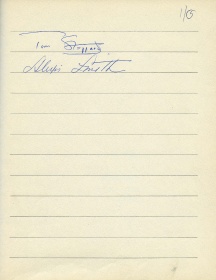 1/65
Tom Stoppard
Alexis Smith